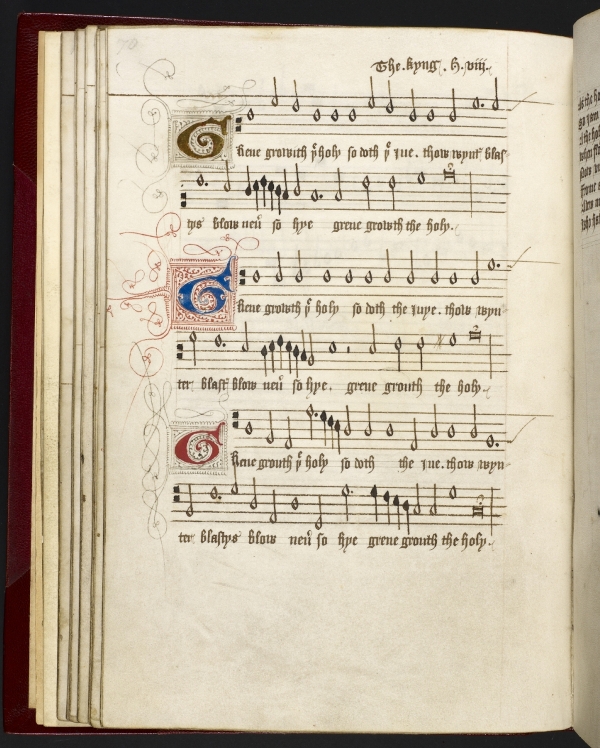 The . kyng . H . viii .
Grene growith yͤ holy so doth yͤ iue . thow wynt blas
tys blow neuͬ so hye grene growth the holy .
Grene growth yͤ holy so doth the iuye . thow wyn
ter blast blow neuͬ so hye . grene grouth the holy .
Grene grouth yͤ holy so doth the iue . thow wyn
ter blastys blow neuͬ so hye grene grouth the holy .